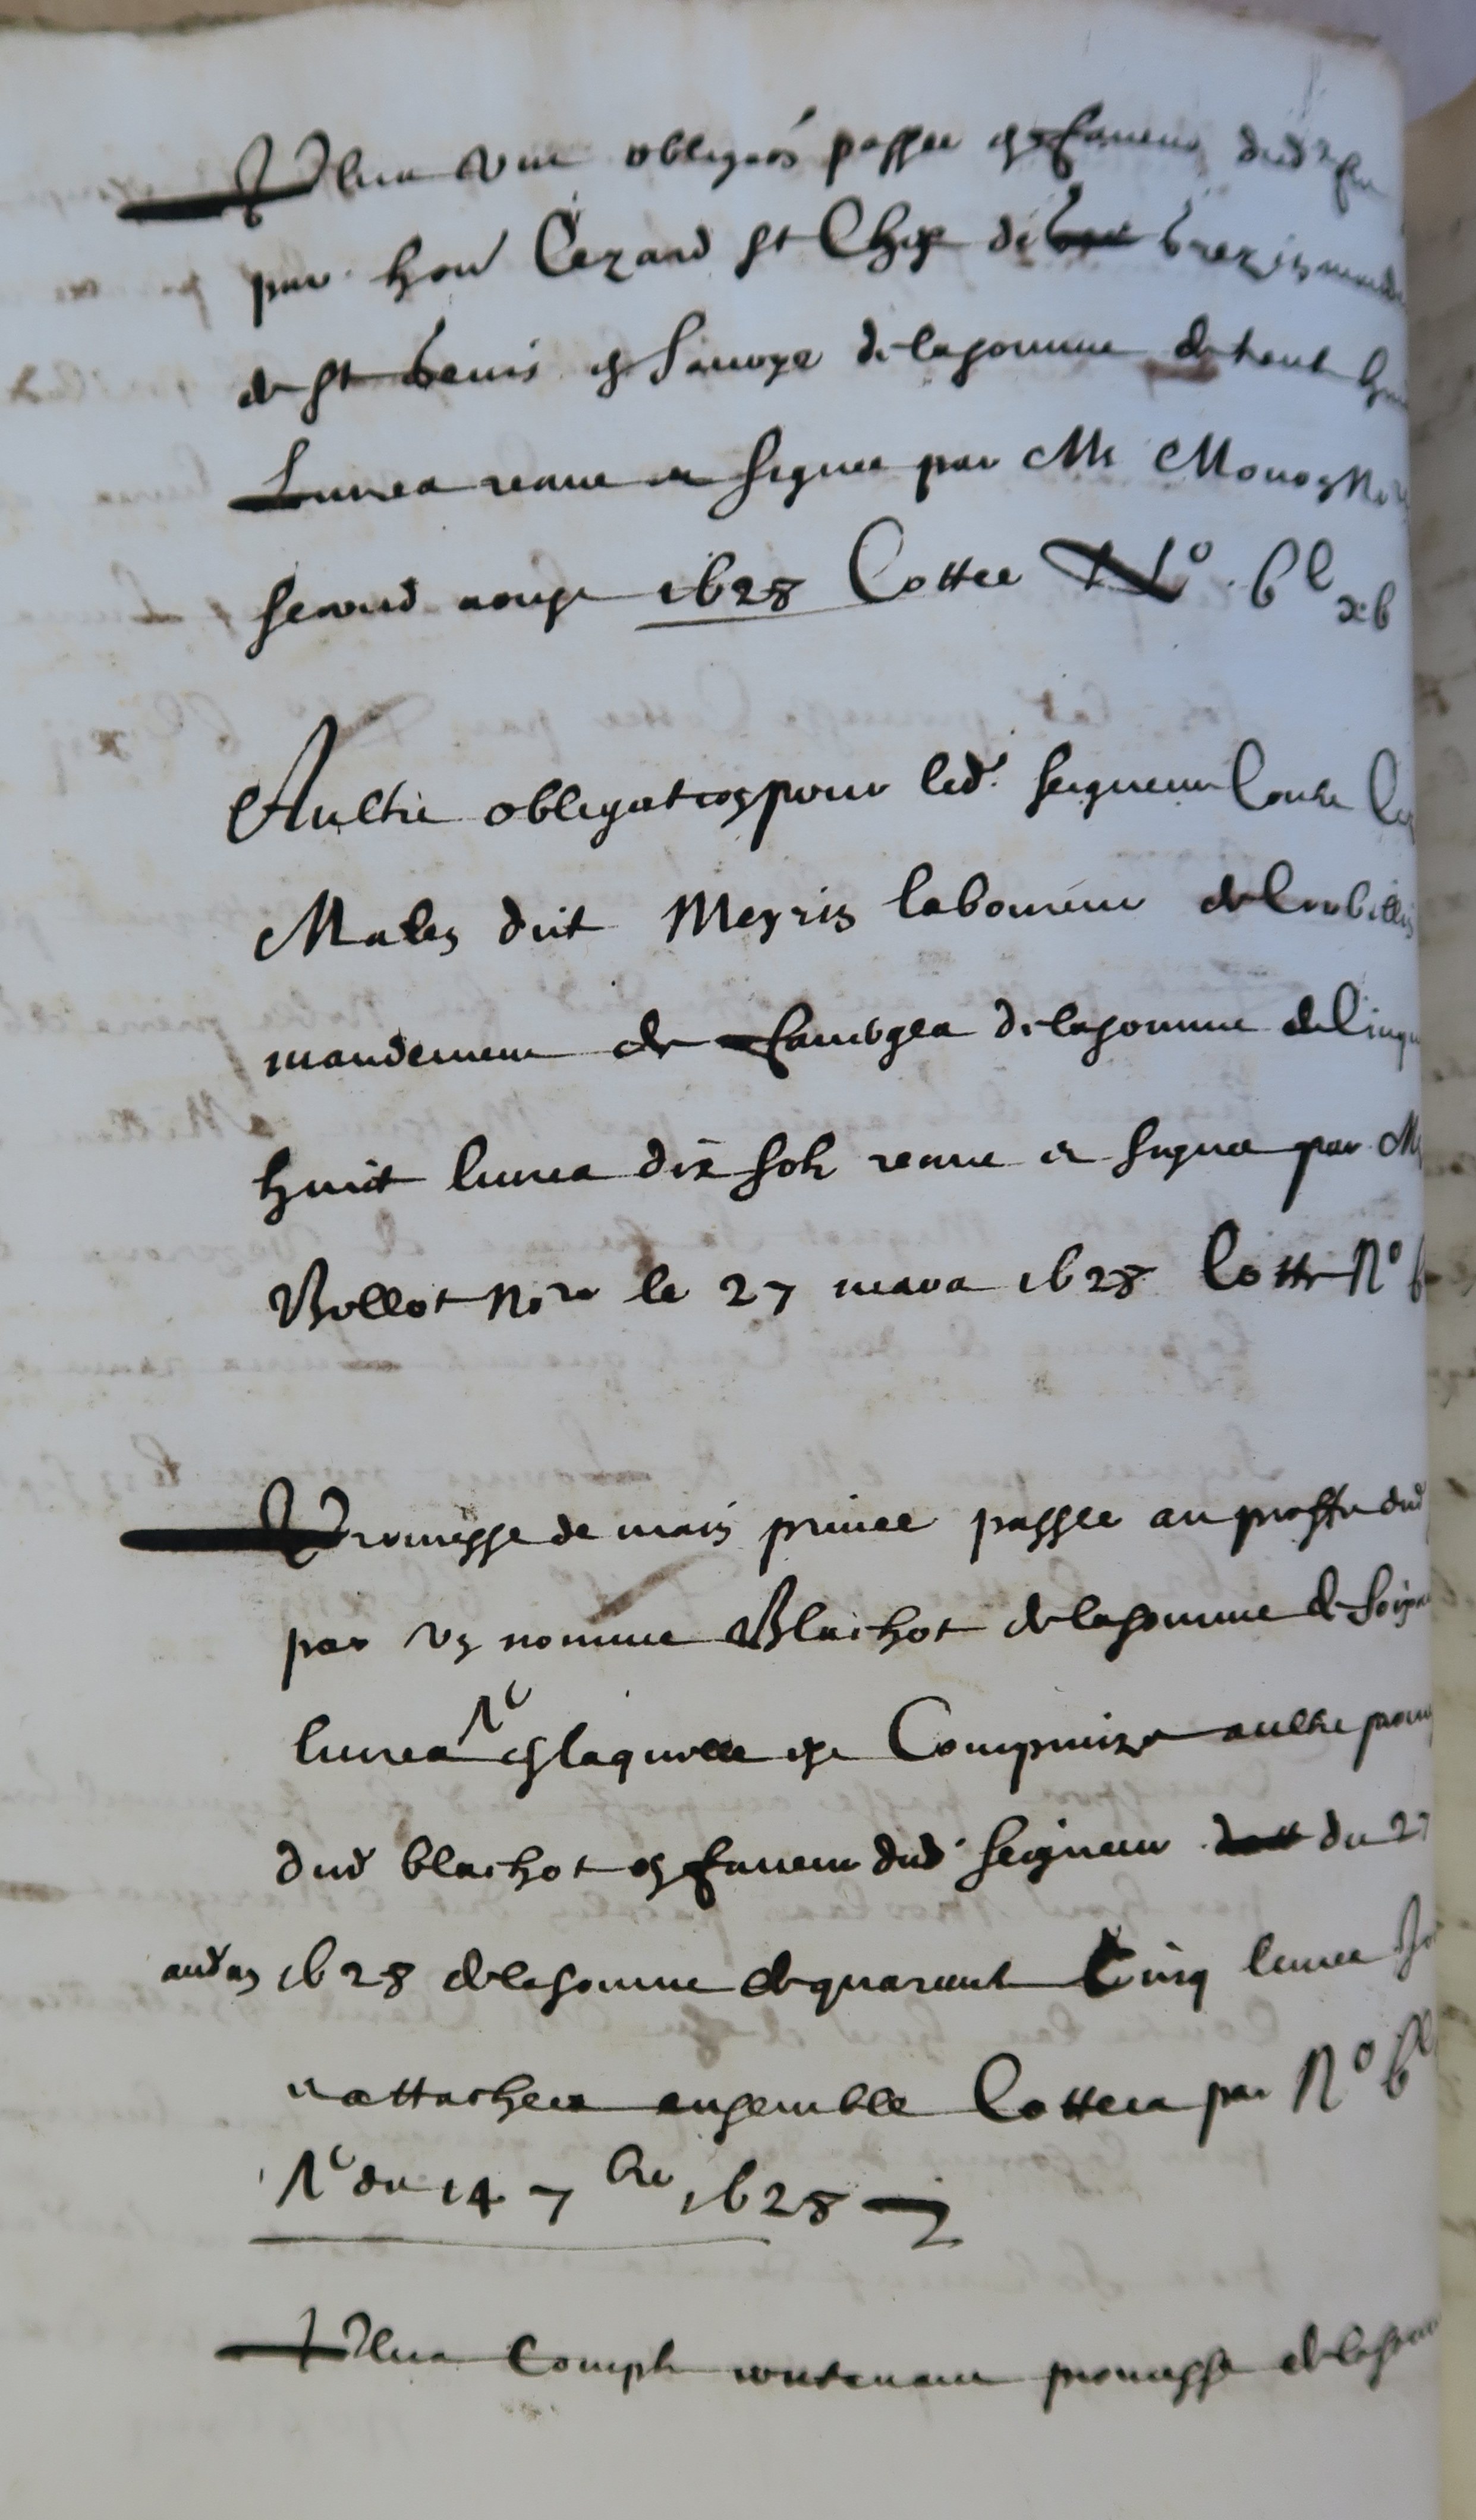 Plus une obligaõn passee en faveur dud sr
par hond Cezard st Chef de brezin mande
de st Genis en Savoye de la somme de trente hui
Livres receue et signee par Me Monon Nore
second aougst 1628 Cottee No. bC xb
Aultre obligation pour led. seigneur Contre
Malen dict Meyrin laboureur de Corbellin
mandement de Faverges de la somme de Cinqu
huict livres dix solz receue et signee par M
Bollot Nore le 27 mars 1628 Cotté No b
Promesse de main privee passee au proffit dud
par un nomme Blaichot de la somme de soixan
livres en laquelle est Comprinze aultre prom
dud blaichot en faveur dud. seigneur du 27
aud an 1628 de la somme de quarante Cinq livres
et attachees ensemble Cottees par No bC
du 14 7bre 1628
Plus Compte contenant promesse de la somme